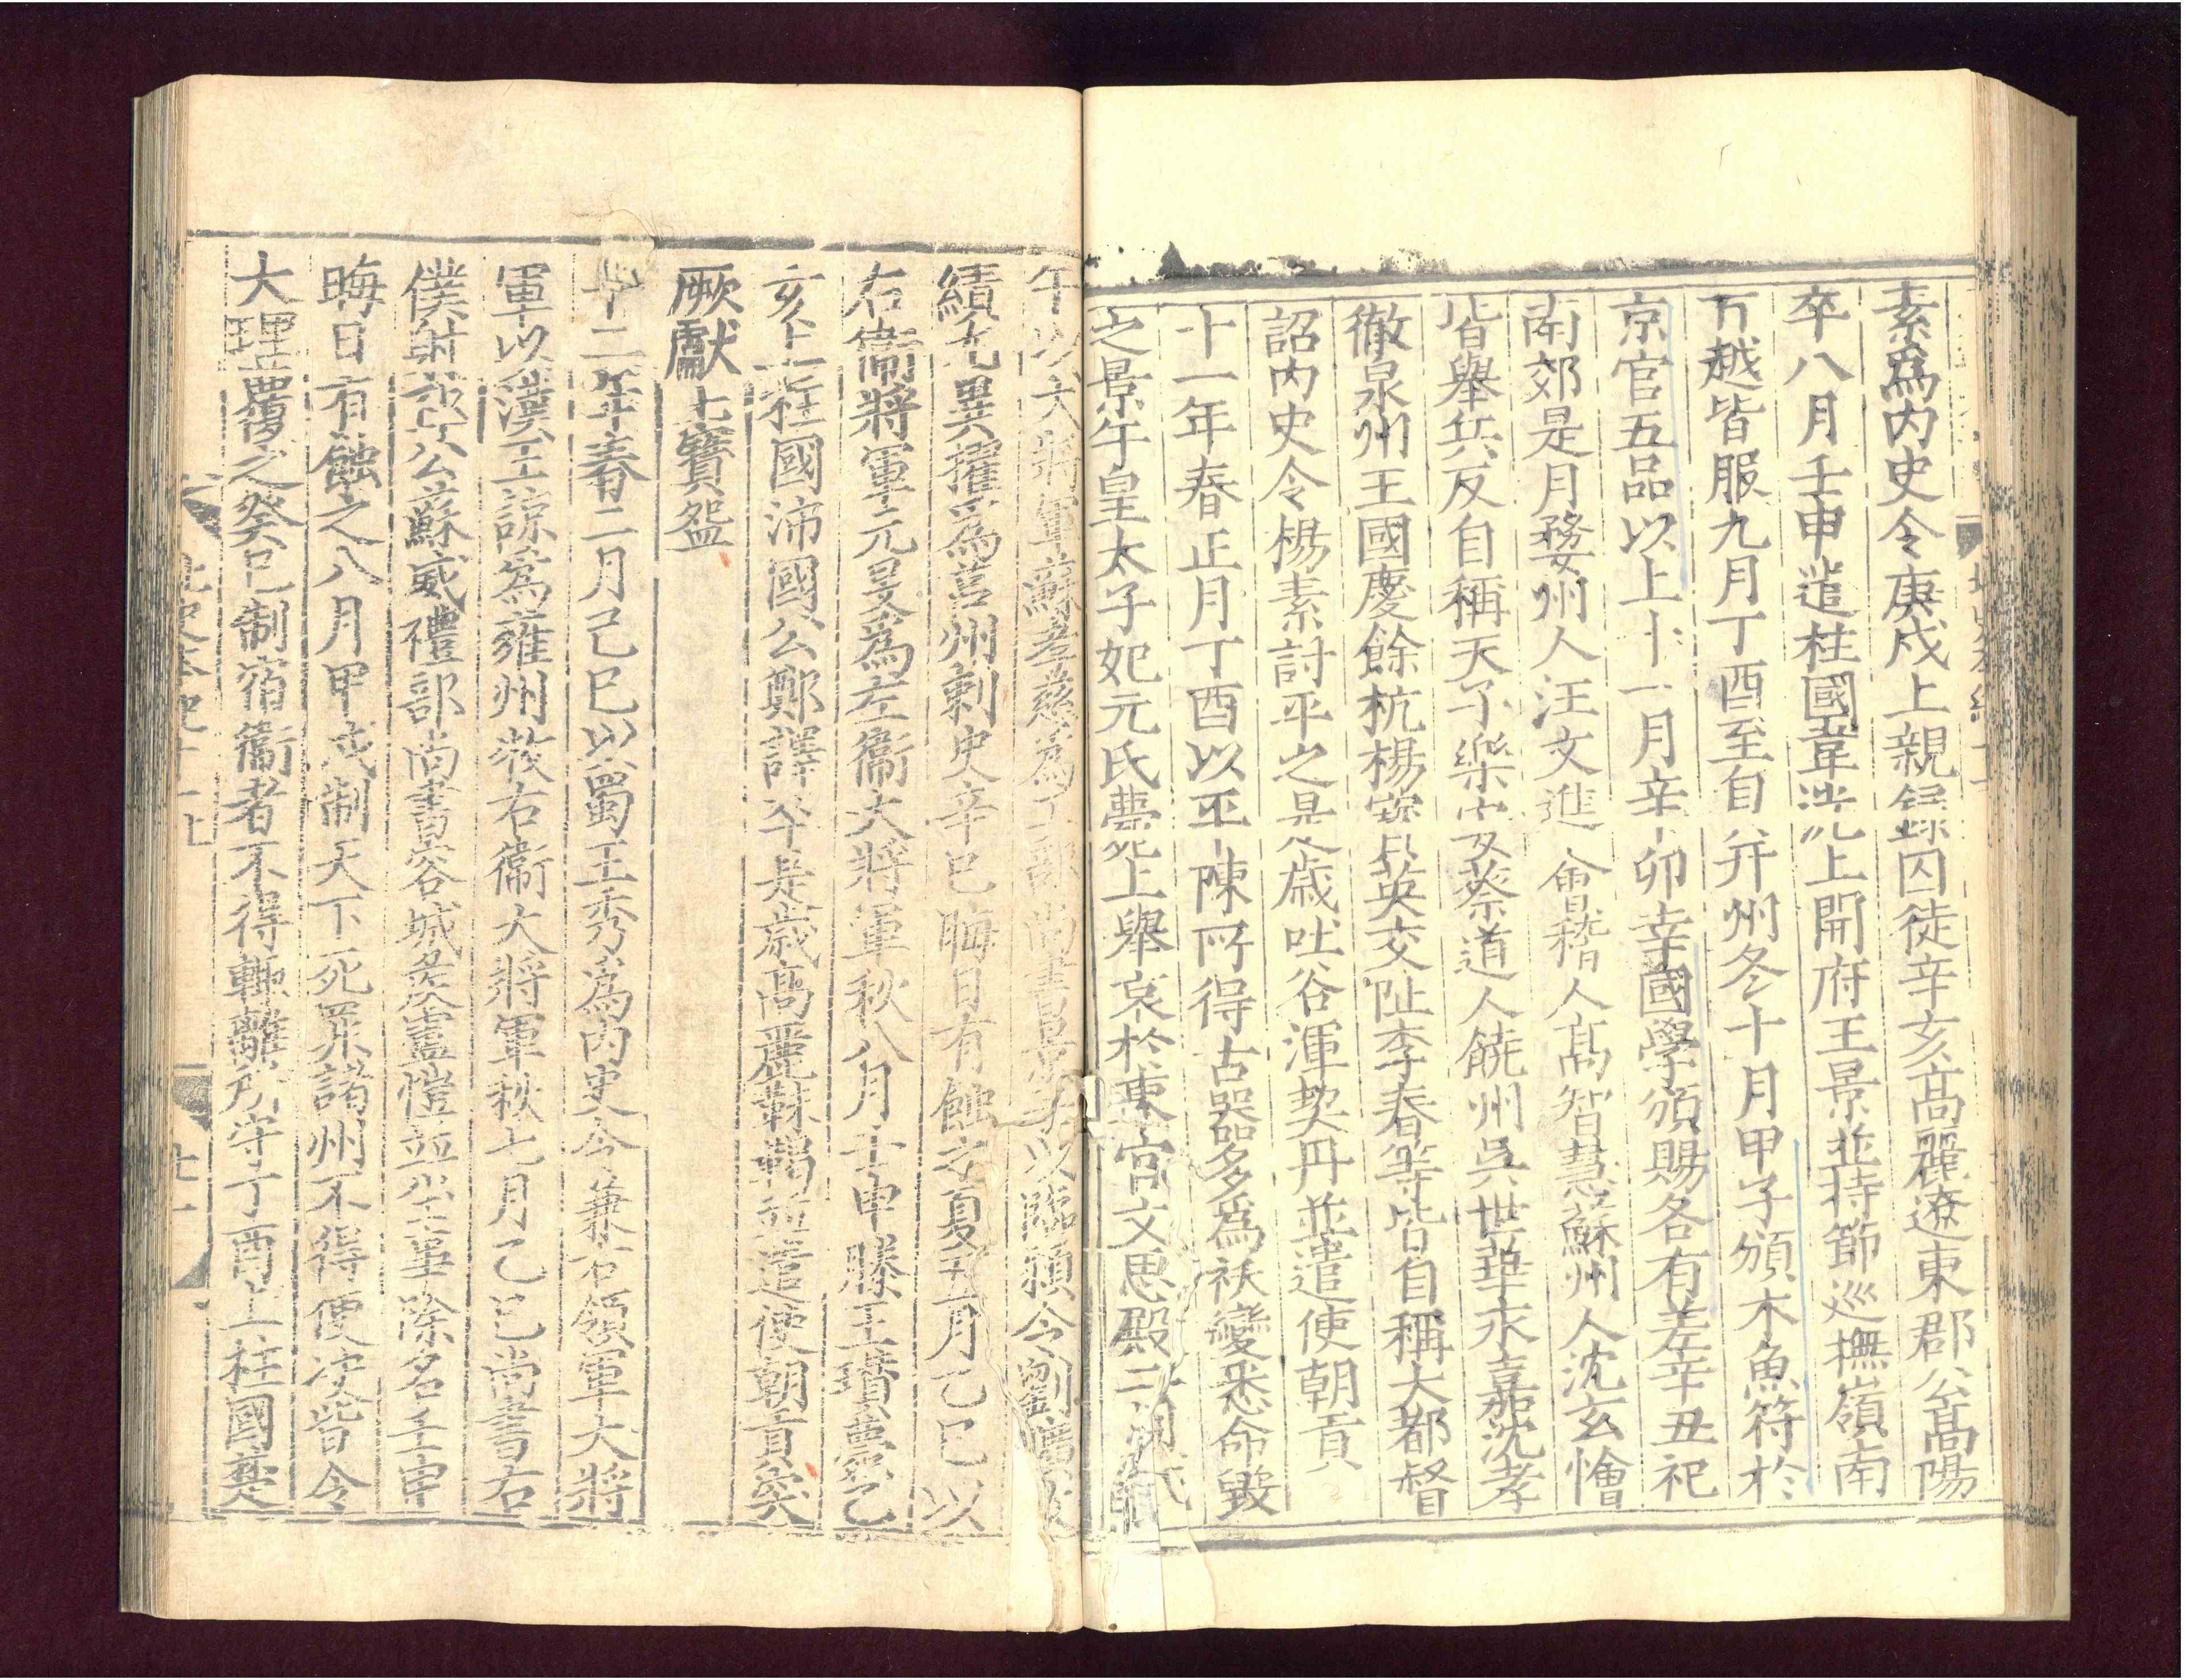 素爲内史令庚戌上親録囚徒辛亥髙麗遼東郡公髙陽
卒八月壬申遣柱國韋洸上開府王景並持節巡撫嶺南
百越皆服九月丁酉至自并州冬十月甲子頒木魚符於
京官五品以上十一月辛卯幸國學頒賜各有差辛丑祀
南郊是月婺州人汪文進會稽人髙智慧蘇州人沈玄懀
皆舉兵反自稱天子樂安蔡道人饒州吳世華永嘉沈孝
徹泉州王國慶餘杭楊寳英交阯李春等皆自稱大都督
詔内史令楊素討平之是歲吐谷渾契丹並遣使朝貢
十一年春正月丁酉以平陳所得古器多爲祅變悉命毁
之景午皇太子妃元氏薨上舉哀於東宫文思殿二月戊
午以大將軍蘇孝慈爲工部尚書景子以臨潁令劉曠
績尤異擢爲莒州刺史辛巳晦日有蝕之夏五月乙巳以
右衞將軍元旻爲左衞大將軍秋八月壬申滕王瓚薨乙
亥上柱國沛國公鄭譯卒是歲髙麗靺鞨並遣使朝貢突
厥獻七寶盌
十二年春二月己巳以蜀王秀爲内史令兼右領軍大將
軍以漢王諒爲雍州牧右衞大將軍秋七月乙巳尚書右
僕射邳公蘇威禮部尚書容城矦盧愷並坐事除名壬申
晦日有蝕之八月甲戌制天下死罪諸州不得便决皆令
大理覆之癸巳制宿衞者不得輙離所守丁酉上柱國夔
北史本紀十一